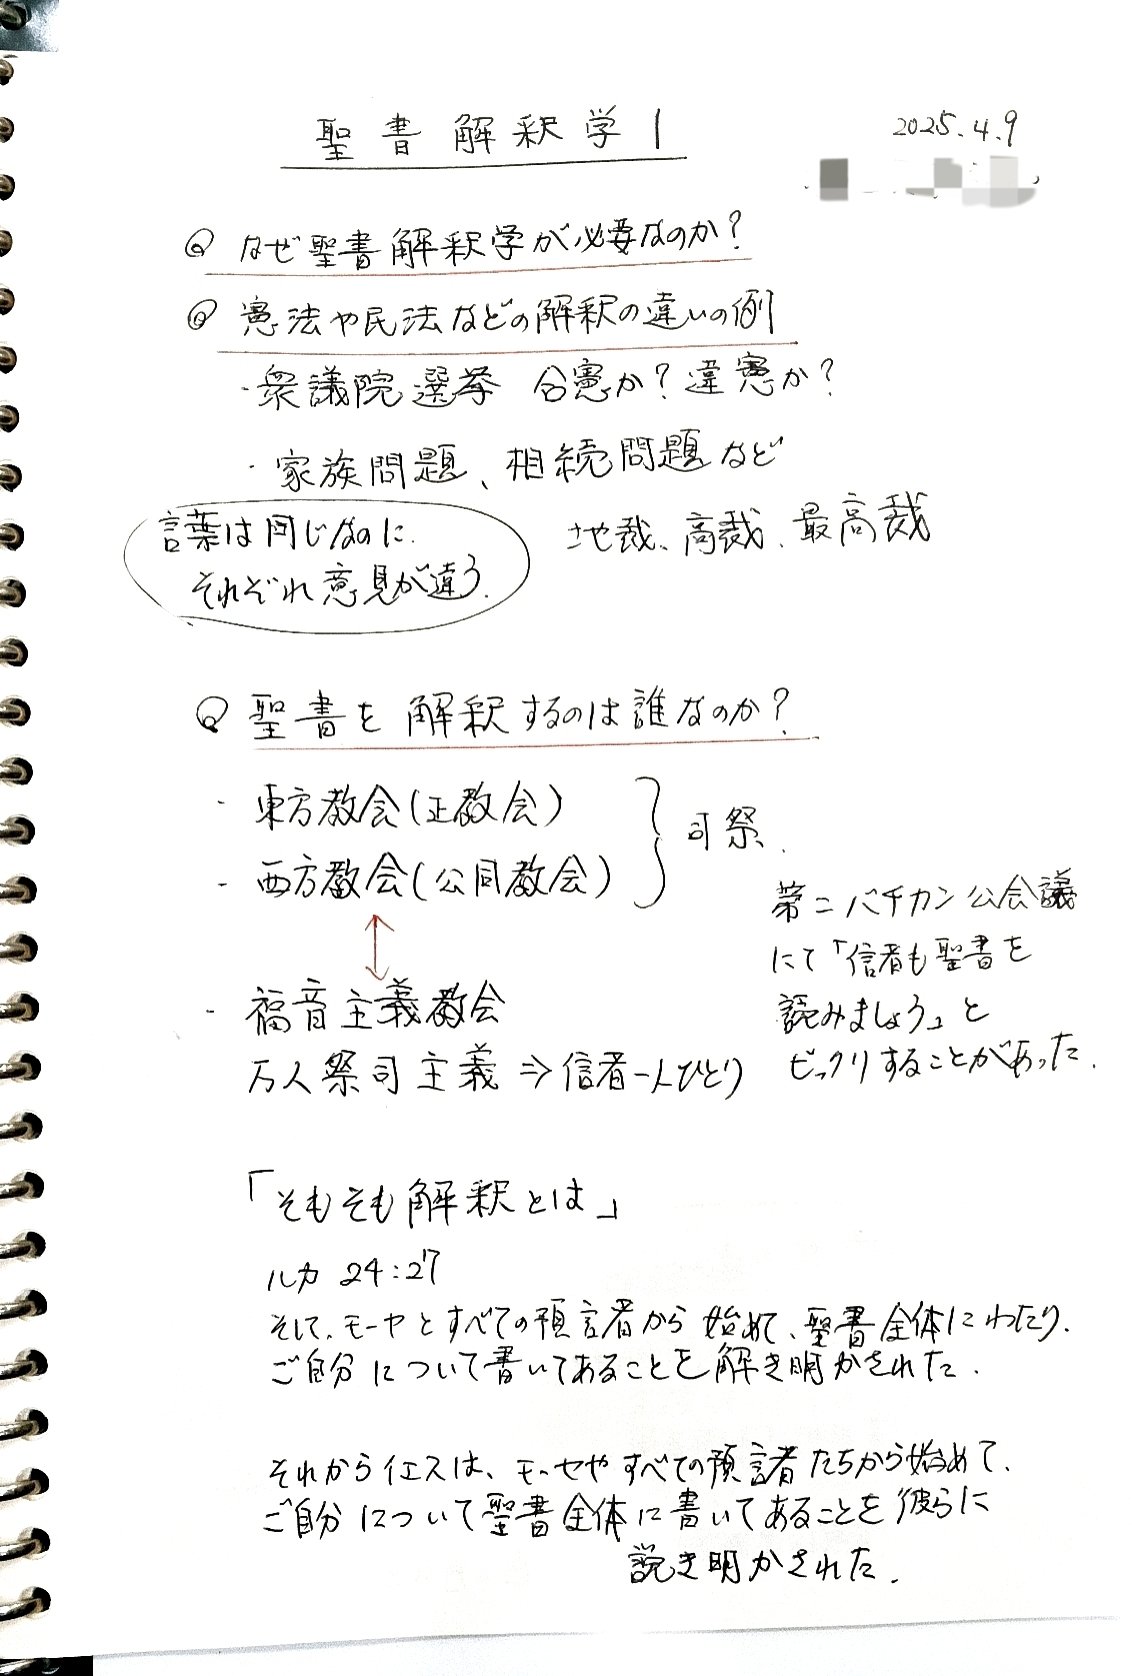 聖書解釈学1
2025.4.9
Q なぜ聖書解釈学が必要なのか?
Q 憲法や民法などの解釈の違いの例
・衆議院選挙 合憲か? 違憲か?
・家族問題、相続問題など
言葉は同じなのに、
それぞれ意見が違う.
地裁、高裁、最高裁
Q 聖書を解釈するのは誰なのか?
・東方教会(正教会)
・西方教会(公同教会)
司祭.
第二バチカン公会議
にて「信者も聖書を
読みましょう」と
ビックリすることがあった.
・福音主義教会
万人祭司主義 ⇒ 信者一人ひとり
「そもそも解釈とは」
ルカ 24:27
そして、モーセとすべての預言者から始めて、聖書全体にわたり、
ご自分について書いてあることを解き明かされた.
それからイエスは、モーセやすべての預言者たちから始めて、
ご自分について聖書全体に書いてあることを彼らに
説き明かされた.